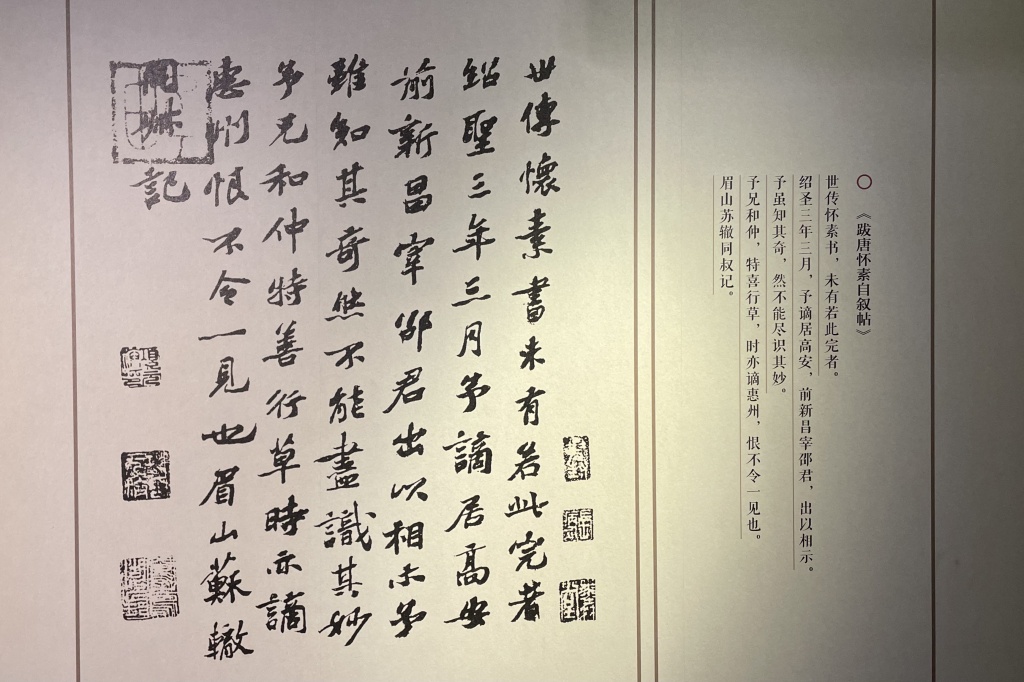 《跋唐怀素自叙帖》
世传怀素书，未有若此完者。
绍圣三年三月，予谪居高安，前新昌宰邵君，出以相示。
予虽知其奇，然不能尽识其妙。
予兄和仲，特喜行草，时亦谪惠州，恨不令一见也。
眉山苏辙同叔记。
世傳懷素書未有若此完者
紹聖三年三月予謫居高安
前新昌宰邵君出以相示予
雖知其奇然不能盡識其妙
予兄和仲特善行草時亦謫
惠州恨不令一見也眉山蘇轍
同叔記